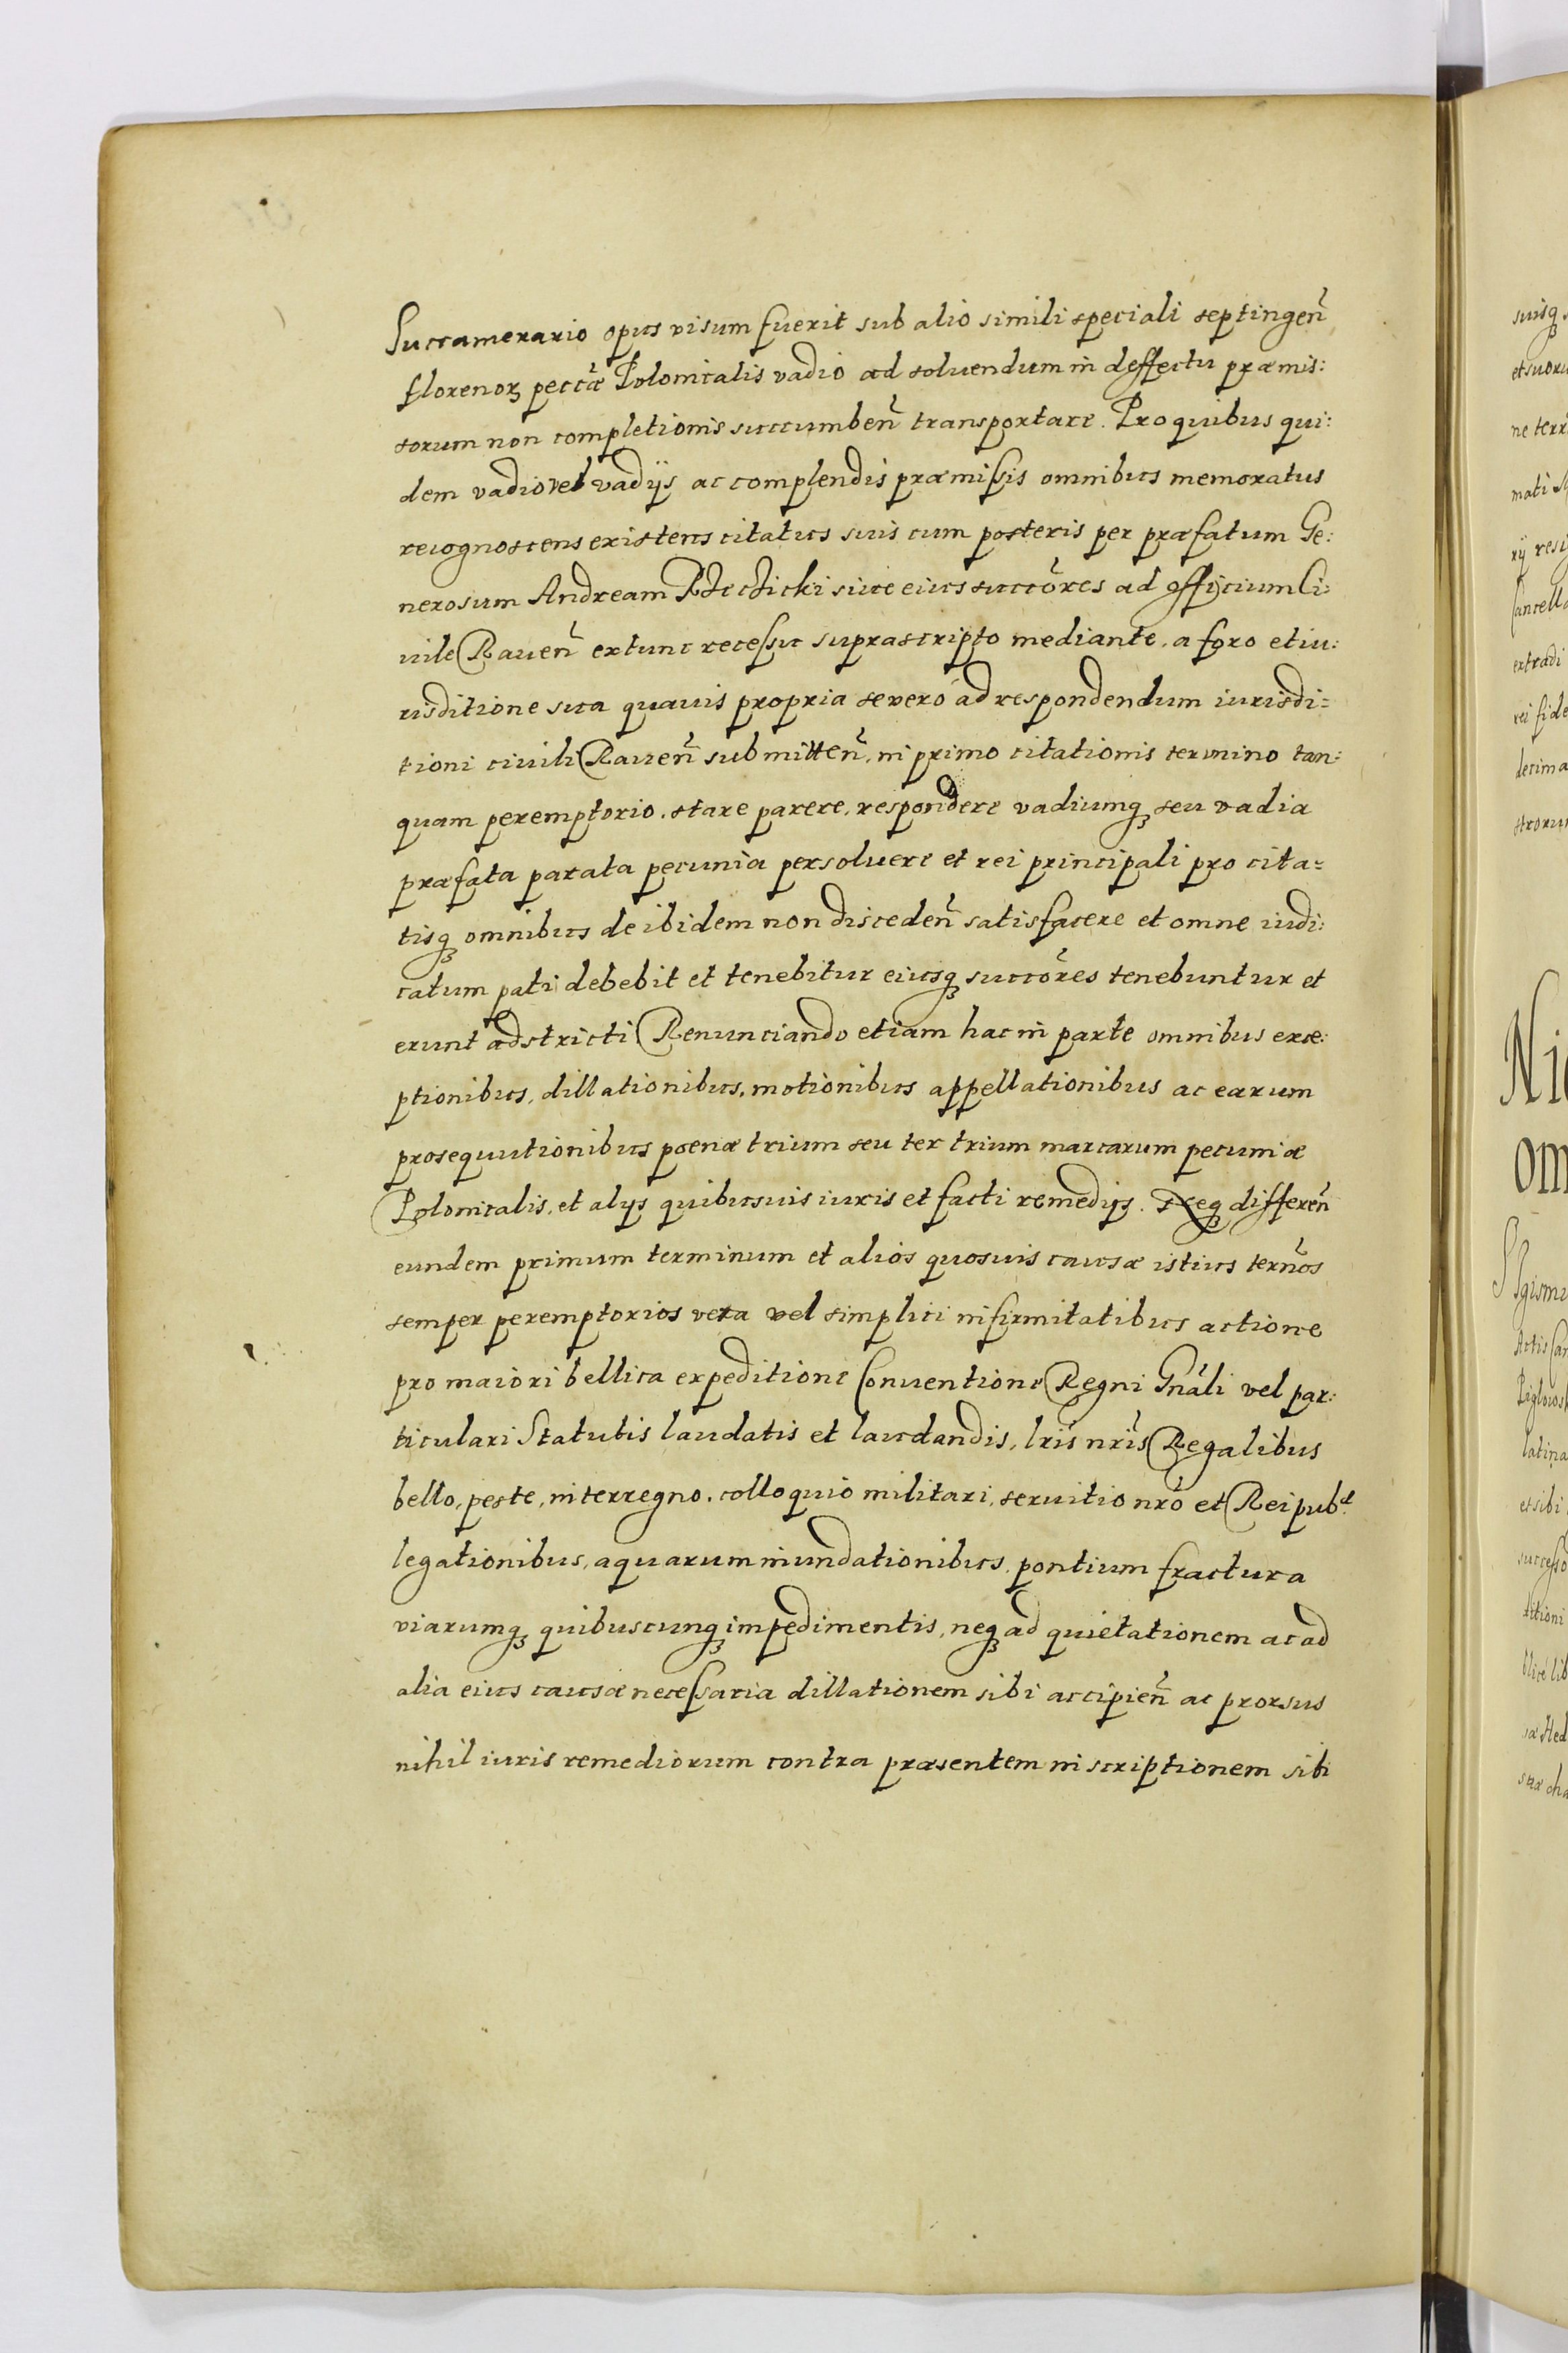 Succamerario opus visum fuerit sub alio simili speciali septingen̄
florenoꝝ peccæ Polonicalis vadio ad soluendum in deffectu præmis:
sorum non completionis succumben̄ transportare. Pro quibus qui:
dem vadio vel vadijs ac complendis præmissis omnibus memoratus
recognoscens existens citatus suis cum posteris per præfatum Ge:
nerosum Andream Rzeczicki siue eius succores ad officium Ci:
uile Rauen̄ extunc recessu suprascripto mediante, a foro et iu:
risditione sua quauis propria se vero ad respondendum iurisdi=
tioni ciuili Rauen̄ submitten̄, in primo citationis termino tan:
quam peremptorio, stare parere, respondere vadiumqꝫ seu vadia
præfata parata pecunia persoluere et rei principali pro cita=
tisqꝫ omnibus de ibidem non disceden̄ satisfacere et omne iudi:
catum pati debebit et tenebitur eiusqꝫ succores tenebuntur et
erunt adstricti Renunciando etiam hac in parte omnibus exce:
ptionibus, dillationibus, motionibus appellationibus ac earum
prosequutionibus poenæ trium seu ter trium marcarum pecuniæ
Polonicalis, et alijs quibusuis iuris et facti remedijs. Neqꝫ differen̄
eundem primum terminum et alios quosuis causæ istius ternos
semper peremptorios vera vel simplici infirmitatibus actione
pro maiori bellica expeditione Conuentione Regni Gnāli vel par:
ticulari Statutis laudatis et laudandis, lris nris Regalibus
bello, peste, interregno, colloquio militari, seruitio nro et Reipub.
legationibus, aquarum inundationibus, pontium fractura
viarumqꝫ quibuscunqꝫ impedimentis, neqꝫ ad quietationem ac ad
alia eius causæ necessaria dillationem sibi accipien̄ ac prorsus
nihil iuris remediorum contra præsentem inscriptionem sibi